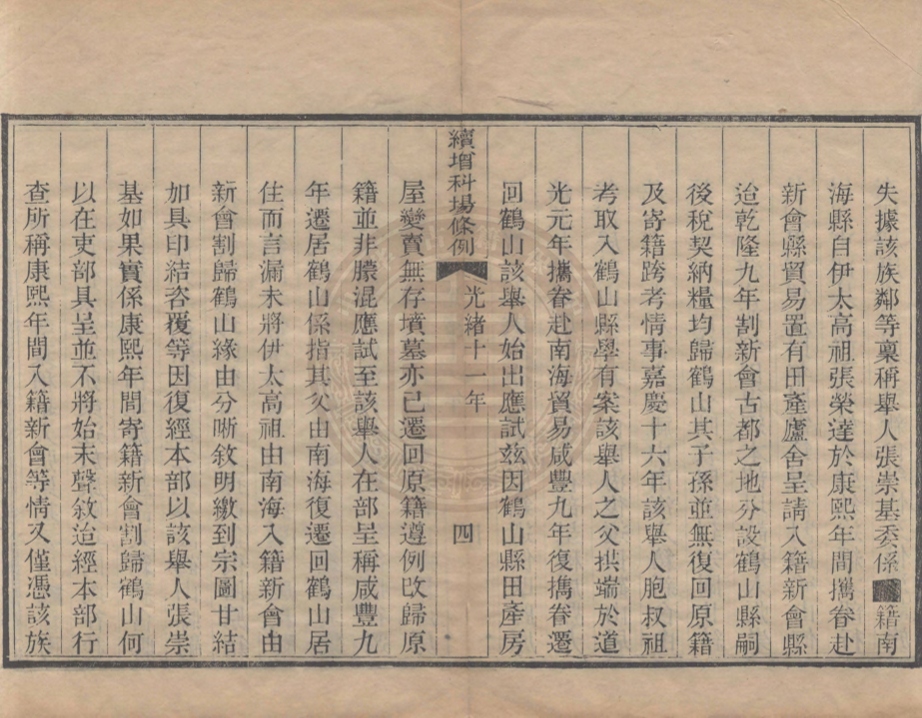 失據該族鄰等稟稱舉人張崇基委係籍南
海縣自伊太高祖張榮達於康熙年間攜眷赴
新會縣貿易置有田產廬舍呈請入籍新會縣
迨乾隆九年割新會古都之地分設鶴山縣嗣
後稅契納糧均歸鶴山其子孫並無復回原籍
及寄籍跨考情事嘉慶十六年該舉人胞叔祖
考取入鶴山縣學有案該舉人之父拱端於道
光元年攜眷赴南海貿易咸豐九年復攜眷遷
回鶴山該舉人始出應試兹因鶴山縣田產房
續增科場條例 光緒十一年 四
屋變賣無存墳墓亦已遷回原籍遵例改歸原
籍並非朦混應試至該舉人在部呈稱咸豐九
年遷居鶴山係指其父由南海復遷回鶴山居
住而言漏未將伊太高祖由南海入籍新會由
新會割歸鶴山緣由分晰敘明繳到宗圖甘結
加具印結咨覆等因復經本部以該舉人張崇
基如果實係康熙年間寄籍新會割歸鶴山何
以在吏部具呈並不將始末聲敘迨經本部行
查所稱康熙年間入籍新會等情又僅憑該族